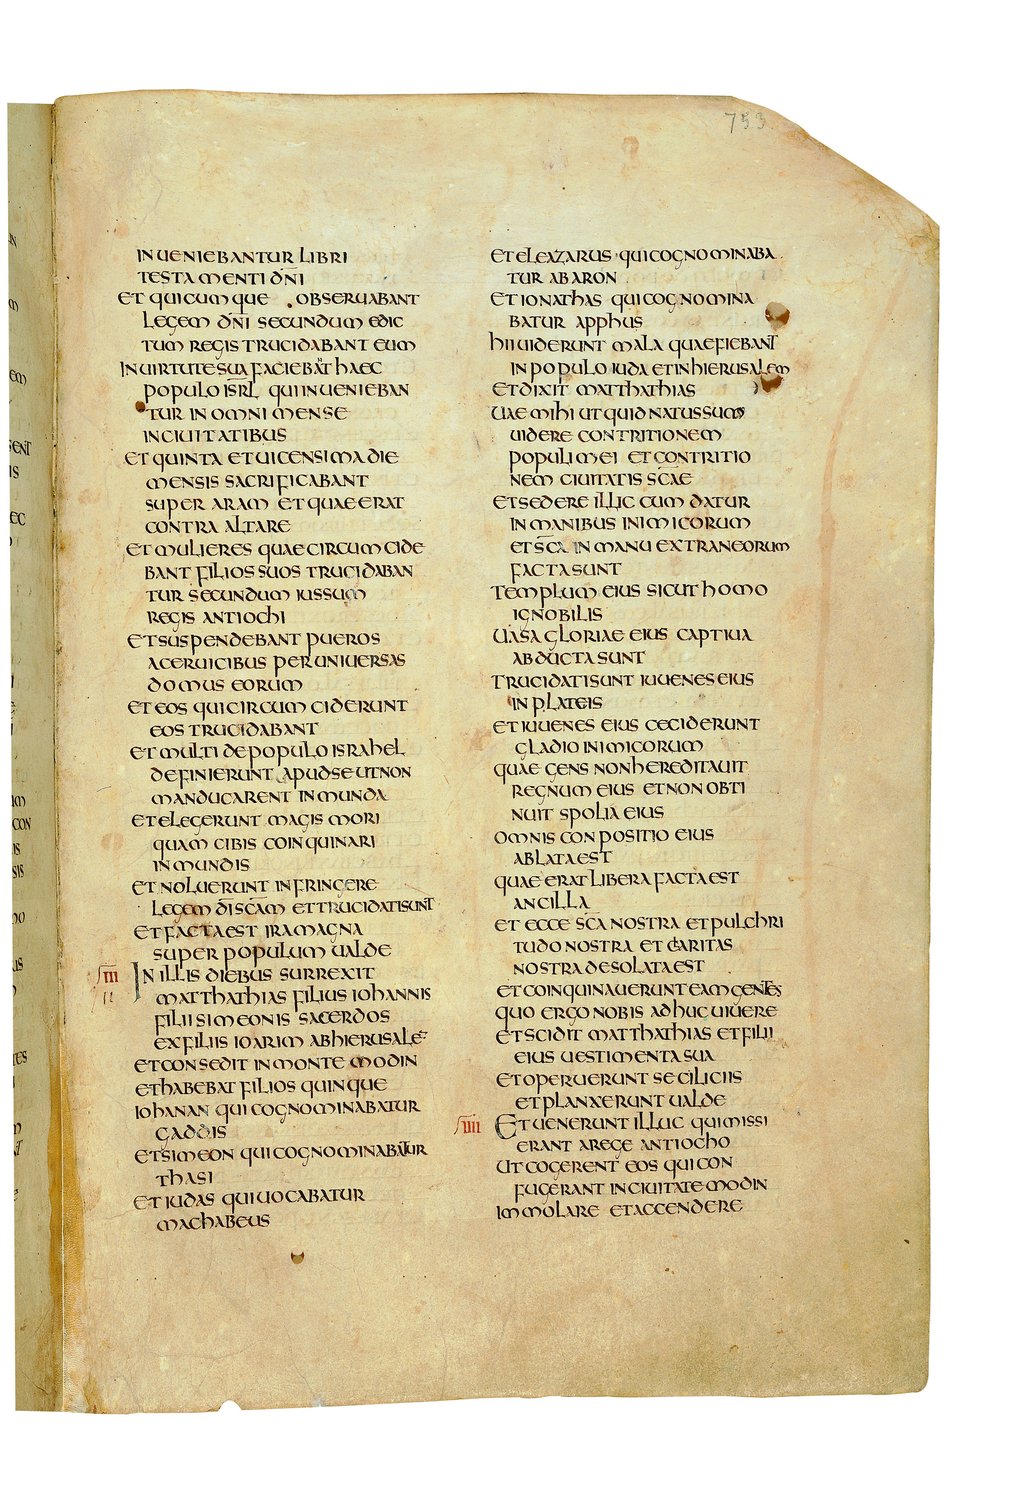 753
INUENIEBANTUR LIBRI
TESTAMENTI DN̄I
ET QUICUMQUE OBSERUABANT
LEGEM DN̄I SECUNDUM EDIC
TUM REGIS TRUCIDABANT EUM
IN UIRTUTE SUA FACIEBANT HAEC
POPULO ISRL̄ QUI INUENIEBAN
TUR IN OMNI MENSE
IN CIUITATIBUS
ET QUINTA ET UICENSIMA DIE
MENSIS SACRIFICABANT
SUPER ARAM ET QUAE ERAT
CONTRA ALTARE
ET MULIERES QUAE CIRCUMCIDE
BANT FILIOS SUOS TRUCIDABAN
TUR SECUNDUM IUSSUM
REGIS ANTIOCHI
ET SUSPENDEBANT PUEROS
A CERUICIBUS PER UNIUERSAS
DOMUS EORUM
ET EOS QUI CIRCUMCIDERUNT
EOS TRUCIDABANT
ET MULTI DE POPULO ISRAHEL
DEFINIERUNT APUD SE UT NON
MANDUCARENT INMUNDA
ET ELEGERUNT MAGIS MORI
QUAM CIBIS COINQUINARI
INMUNDIS
ET NOLUERUNT INFRINGERE
LEGEM DĪ SCAM ET TRUCIDATI SUNT
ET FACTA EST IRA MAGNA
SUPER POPULUM UALDE
III IN ILLIS DIEBUS SURREXIT
II MATTHATHIAS FILIUS IOHANNIS
FILII SIMEONIS SACERDOS
EX FILIIS IOARIM AB HIERUSALE
ET CONSEDIT IN MONTE MODIN
ET HABEBAT FILIOS QUINQUE
IOHANAN QUI COGNOMINABATUR
GADDIS
ET SIMEON QUI COGNOMINABATUR
THASI
ET IUDAS QUI UOCABATUR
MACHABEUS
ET ELEAZARUS QUI COGNOMINABA
TUR ABARON
ET IONATHAS QUI COGNOMINA
BATUR APPHUS
HII UIDERUNT MALA QUAE FIEBANT
IN POPULO IUDA ET IN HIERUSALEM
ET DIXIT MATTHATHIAS
UAE MIHI UT QUID NATUS SUM
UIDERE CONTRITIONEM
POPULI MEI ET CONTRITIO
NEM CIUITATIS SC̄AE
ET SEDERE ILLIC CUM DATUR
IN MANIBUS INIMICORUM
ET SC̄A IN MANU EXTRANEORUM
FACTA SUNT
TEMPLUM EIUS SICUT HOMO
IGNOBILIS
UASA GLORIAE EIUS CAPTIUA
ABDUCTA SUNT
TRUCIDATI SUNT IUUENES EIUS
IN PLATEIS
ET IUUENES EIUS CECIDERUNT
GLADIO INIMICORUM
QUAE GENS NON HEREDITAUIT
REGNUM EIUS ET NON OBTI
NUIT SPOLIA EIUS
OMNIS CONPOSITIO EIUS
ABLATA EST
QUAE ERAT LIBERA FACTA EST
ANCILLA
ET ECCE SC̄A NOSTRA ET PULCHRI
TUDO NOSTRA ET CLARITAS
NOSTRA DESOLATA EST
ET COINQUINAUERUNT EAM GENTES
QUO ERGO NOBIS ADHUC UIUERE
ET SCIDIT MATTHATHIAS ET FILII
EIUS UESTIMENTA SUA
ET OPERUERUNT SE CILICIIS
ET PLANXERUNT UALDE
IIII ET UENERUNT ILLUC QUI MISSI
ERANT A REGE ANTIOCHO
UT COGERENT EOS QUI CON
FUGERANT IN CIUITATE MODIN
IMMOLARE ET ACCENDERE